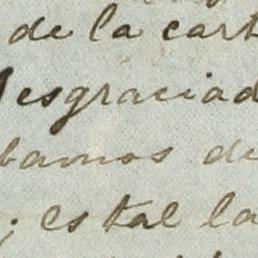 de la cart
desgraciad
bamos de
; es tal la